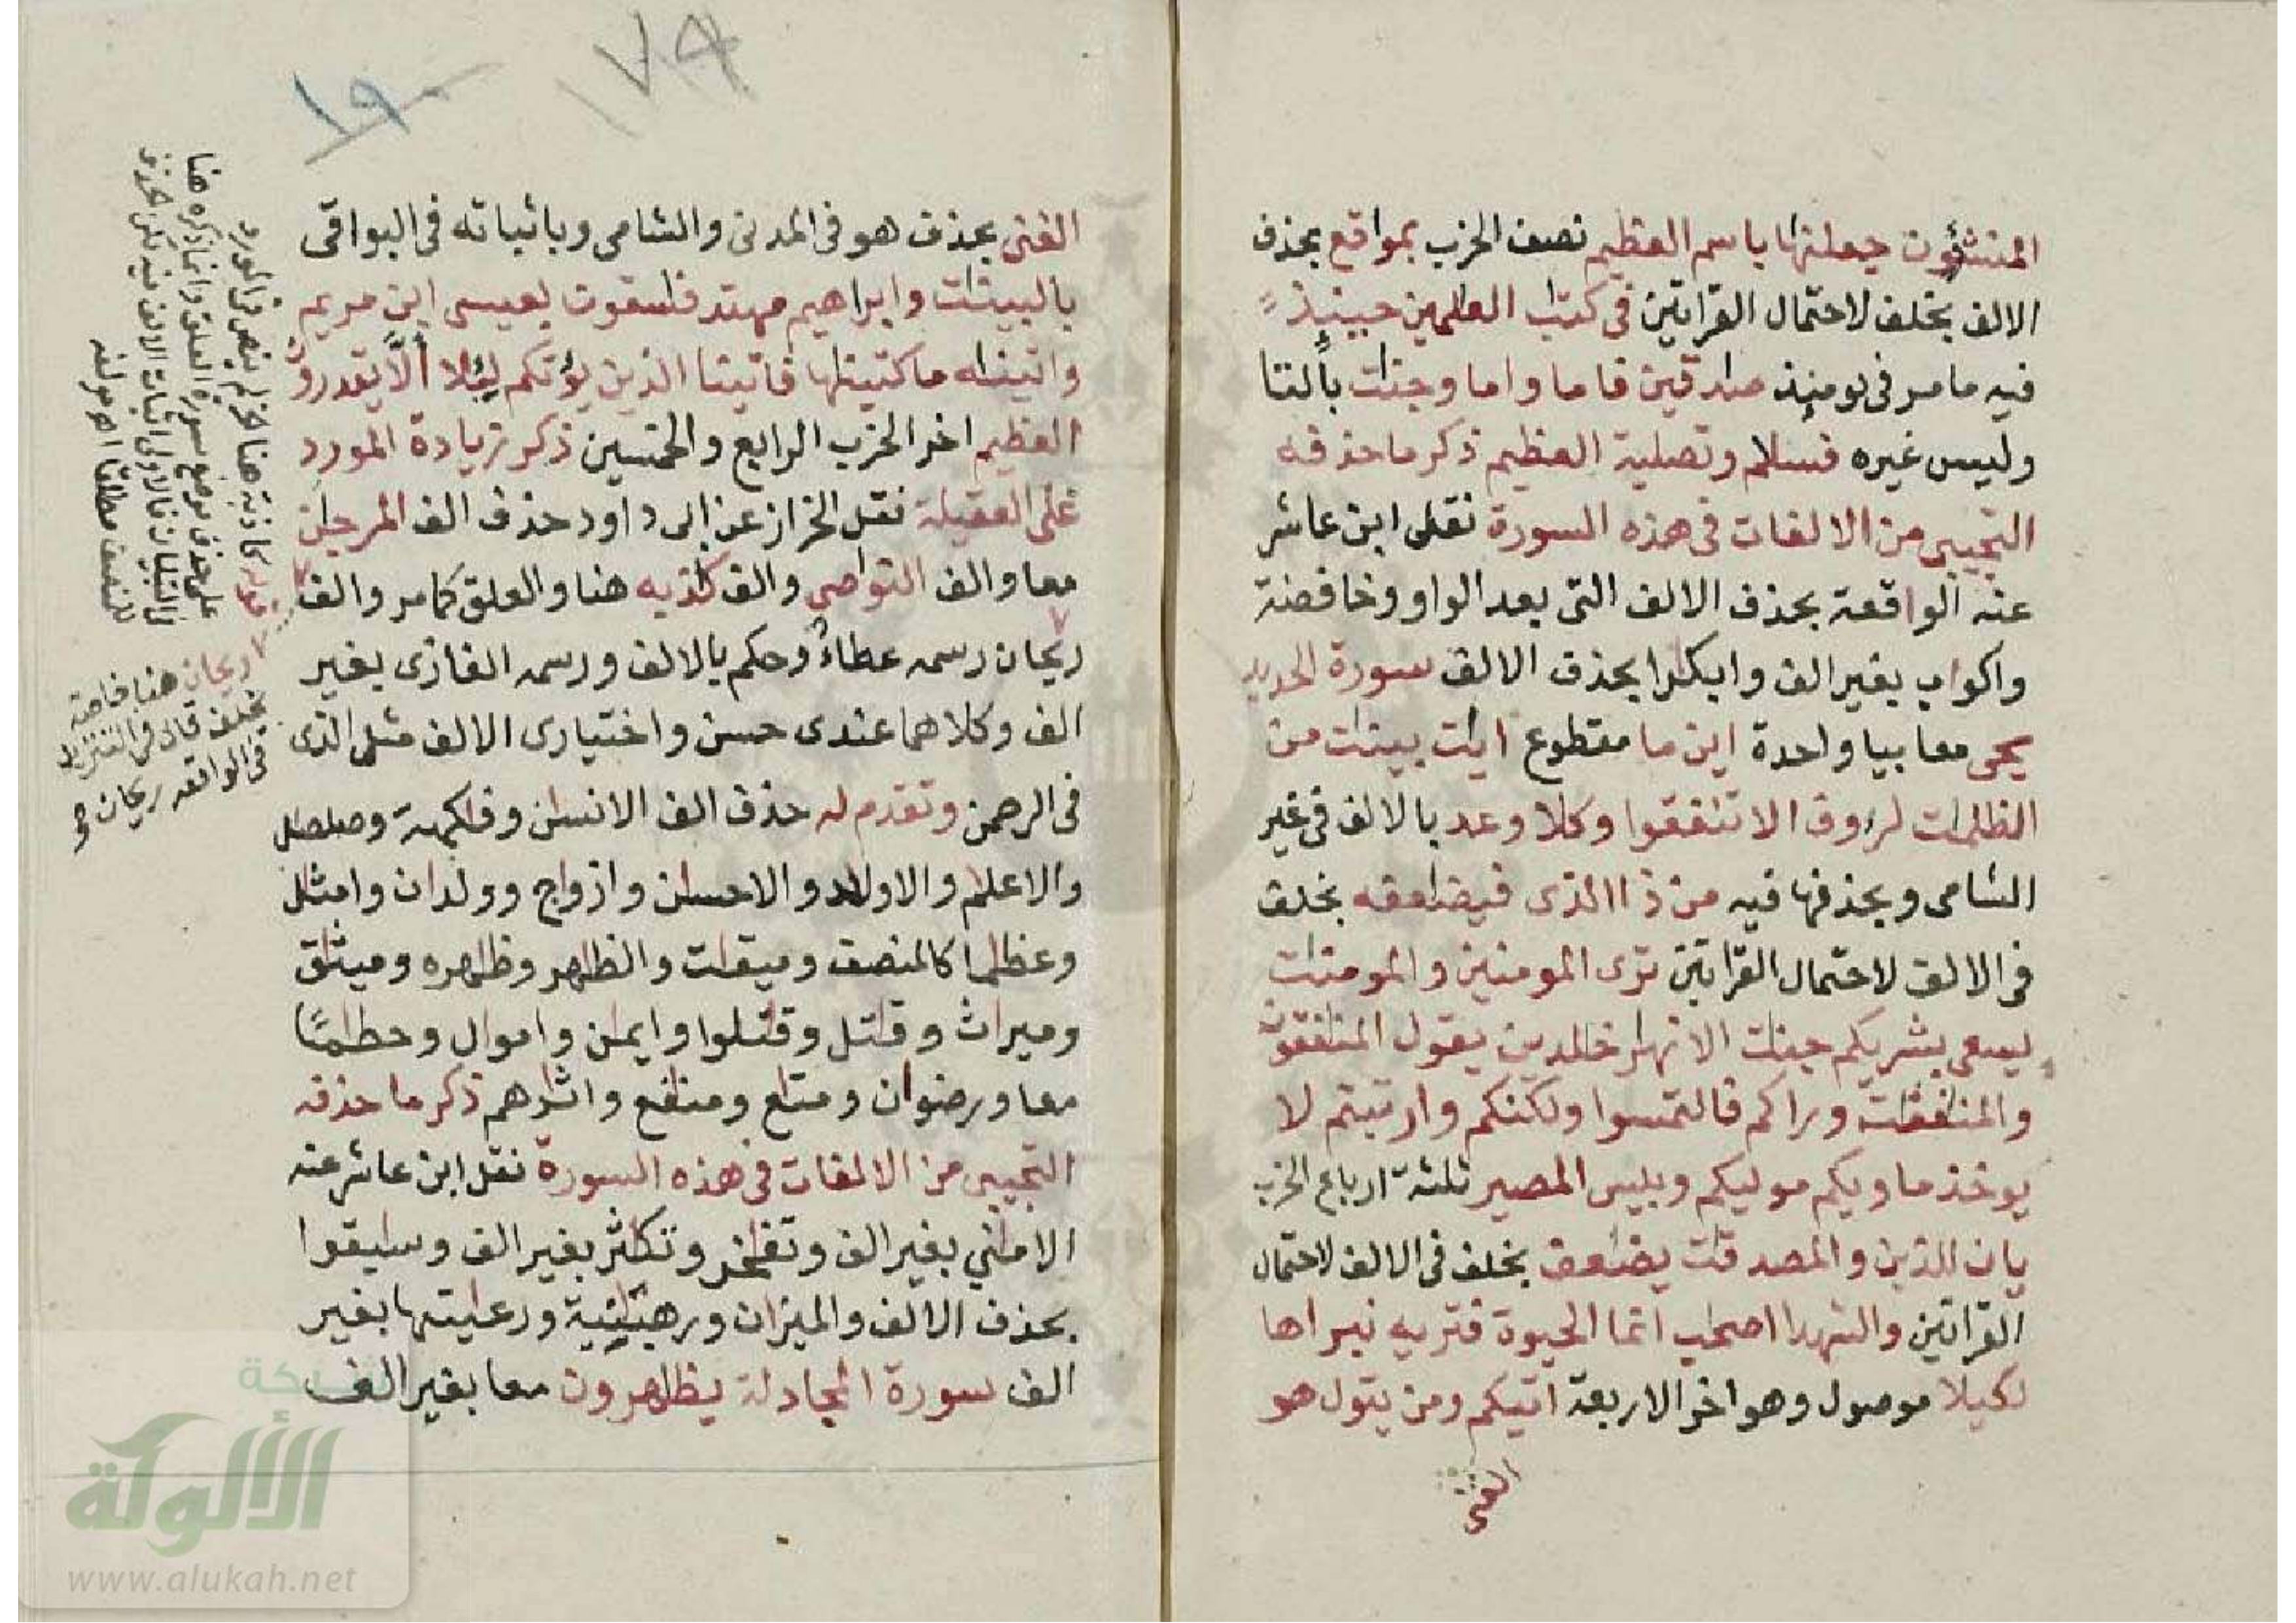 المنشؤن جعلنها باسم العظيم نصف الحزب بمواقع بحذف
الالف بخلف لاحتمال القراتين في كتب العلمين حينيذ
فيه ما مر في يومئذ صدقين فاما واما وجنت بالتا
وليس غيره فسلم وتصلية العظيم ذكر ما حذفه
التجيبي من الالفات في هذه السورة نقل ابن عاشر
عنه الواقعة بحذف الالف التي بعد الواو وخافضة
واكواب بغير الف وابكرا بحذف الالف سورة الحديد
يحى معا بيا واحدة اين ما مقطوع ايت بينت من
الظلمت لروف الا تنفقوا وكلا وعد بالالف في غير
الشامى وبحذفها فيه من ذا الذى فيضعفه بخلف
في الالف لاحتمال القراتين ترى المومنين والمومنت
يسعى بشريكم جنت الانهر خلدين يقول المنفقون
والمنفقت وراكم فالتمسوا ولكنكم وارتبتم لا
يوخذ ماويكم موليكم وبيس المصير ثلثة ارباع الحزب
يان للذين والمصدقت يضعف بخلف في الالف لاحتمال
القراتين والشهدا اصحب انما الحيوة فتريه نبراها
لكيلا موصول وهو اخر الاربعة اتيكم ومن يتول هو
الغنى
١٧٩
١٩٠
الغنى بحذف هو في المدنى والشامى وباثباته في البواقى
بالبينت وابراهيم مهتد فسقون بعيسى ابن مريم
واتينه ما كتبنها فاتينا الذين يؤتكم لئلا ألّا يقدرون
العظيم اخر الحزب الرابع والخمسين ذكر زيادة المورد
على العقيلة نقل الخراز عن ابى داود حذف الف المرجن
معا والف النواصى والف كذبه هنا والعلق كما مر والف
ريحان رسمه عطاء وحكم بالالف ورسمه الغازى بغير
الف وكلاهما عندى حسن واختيارى الالف مثل الذى
في الرحمن وتقدم له حذف الف الانسن وفكهة وصلصل
والاعلم والاولد والاحسن وازوج وولدان وامثل
وعظما كالمنصف وميقت والظهر وظهره وميثق
وميراث وقتل وقتلوا وايمن واموال وحطما
معا ورضوان ومتع ومنفع واثرهم ذكر ما حذفه
التجيبي من الالفات في هذه السورة نقل ابن عاشر عنه
الامني بغير الف وتفخر وتكثر بغير الف وسبقوا
بحذف الالف والميزان ورهبنية ورعيتها بغير
الف سورة المجادلة يظهرون معا بغير الف
ريحان هنا فاصته
بخلف قال في التنزيل
في الواقعه ريحان
شبكة
الألوكة
www.alukah.net